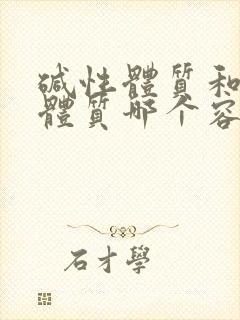 碱性體質和
體質哪个容
石才學